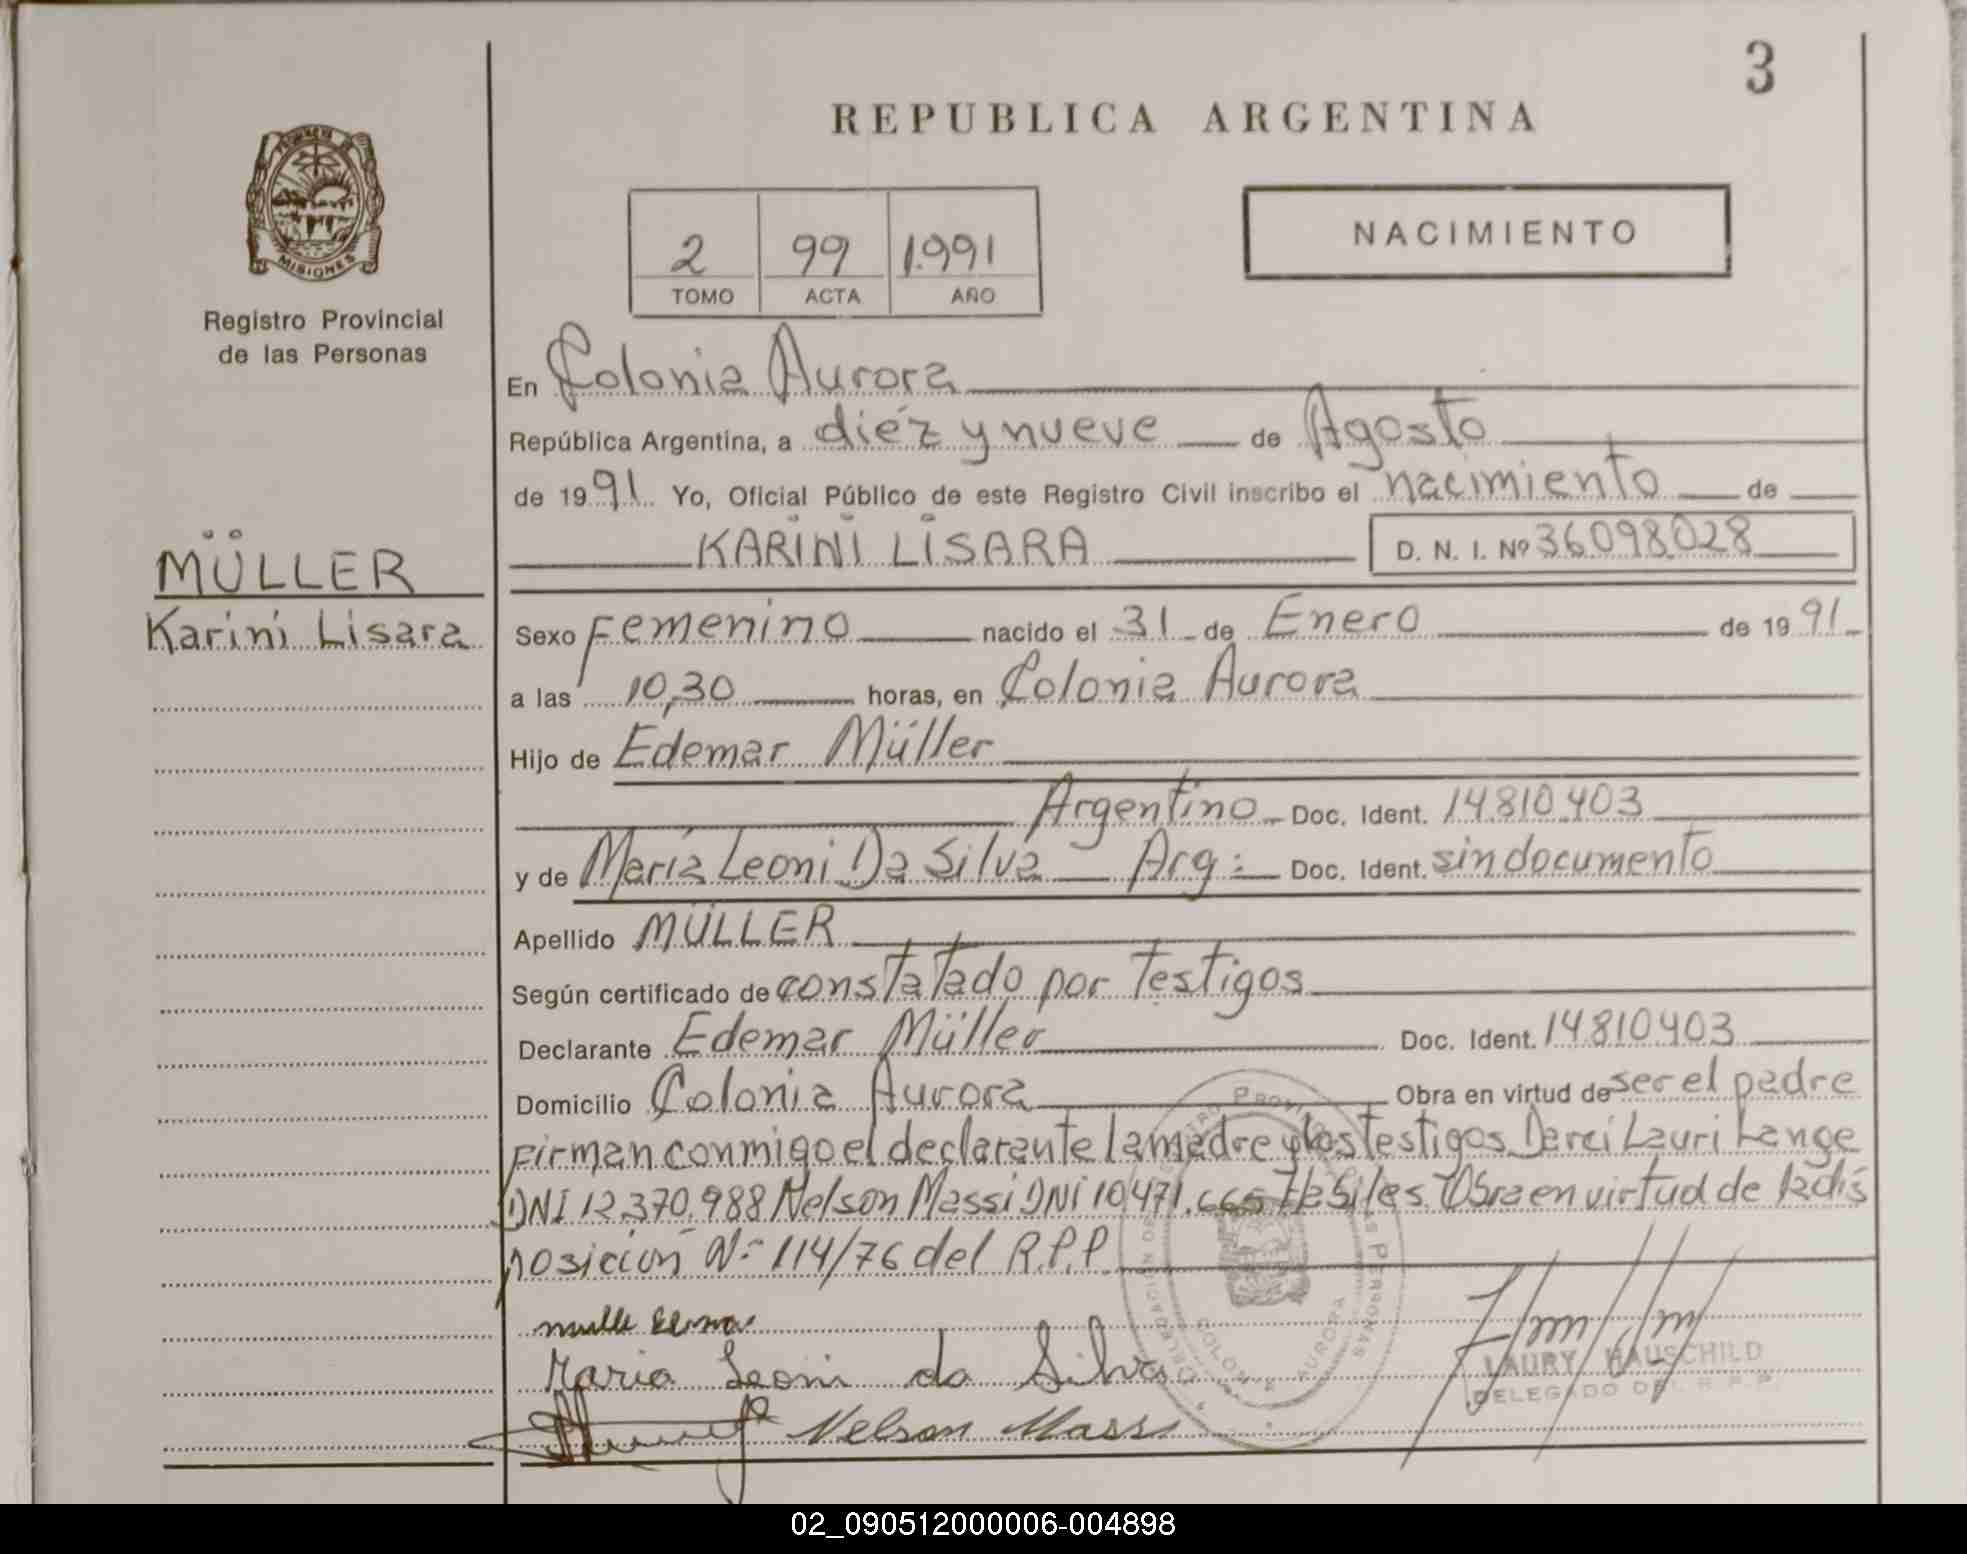 3
REPUBLICA ARGENTINA
PROVINCIA DE
MISIONES
Registro Provincial
de las Personas
2 99 1.991
TOMO ACTA AÑO
NACIMIENTO
En Colonia Aurora
República Argentina, a diéz y nueve de Agosto
de 1991. Yo, Oficial Público de este Registro Civil inscribo el nacimiento de
KARINI LISARA D. N. I. Nº 36.098.028
MÜLLER
Karini Lisara
Sexo Femenino nacido el 31 de Enero de 1991
a las 10,30 horas, en Colonia Aurora
Hijo de Edemar Müller
Argentino Doc. Ident. 14.810.403
y de María Leoni Da Silva Arg: Doc. Ident. sin documento
Apellido MÜLLER
Según certificado de constatado por Testigos
Declarante Edemar Müller Doc. Ident. 14.810.403
Domicilio Colonia Aurora Obra en virtud de ser el padre
Firman conmigo el declarante la madre y los testigos Darci Lauri Lange
DNI 12.370.988 Nelson Massi DNI 10.471.665 Habiles. Obra en virtud de la dis
posición Nº 114/76 del R.P.P.
Maria Leoni da Silva
LAURY HAUSCHILD
DELEGADO DEL R.P.P.
Nelson Massi
02_090512000006-004898